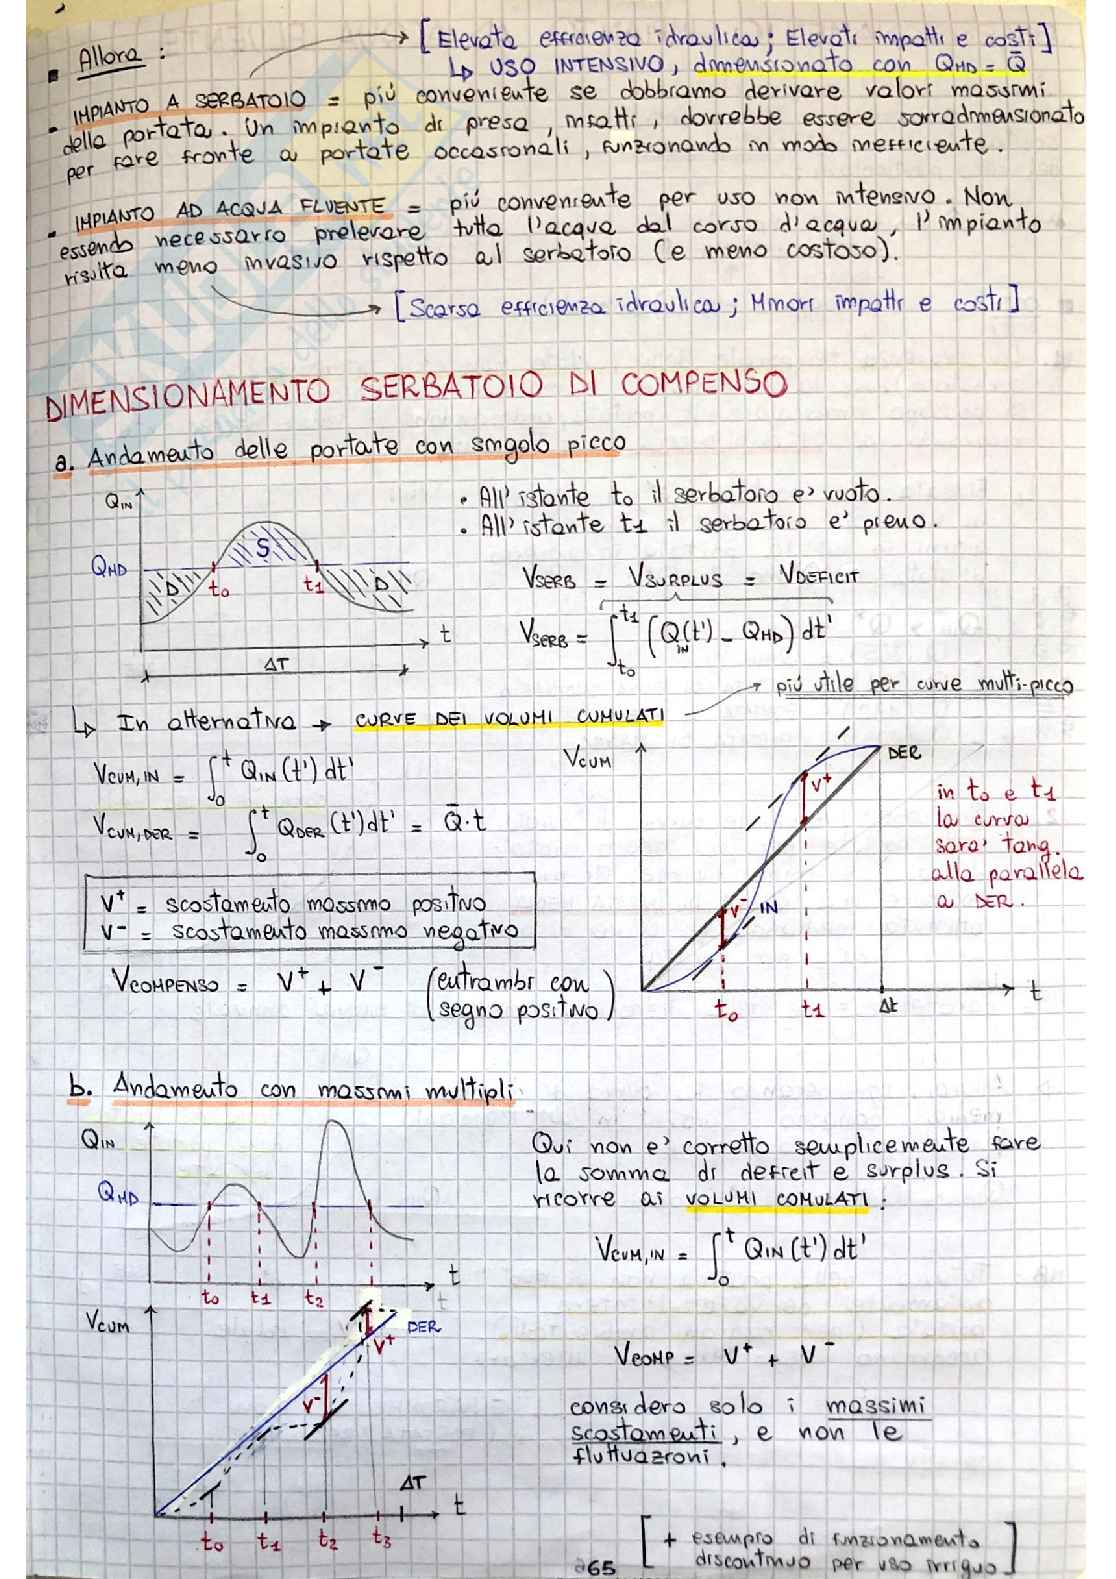 [Elevata efficienza idraulica; Elevati impatti e costi]
▪ Allora :
↳ USO INTENSIVO, dimensionato con QMD = Q̄
• IMPIANTO A SERBATOIO = più conveniente se dobbiamo derivare valori massimi
della portata. Un impianto di presa, infatti, dovrebbe essere sovradimensionato
per fare fronte a portate occasionali, funzionando in modo inefficiente.
• IMPIANTO AD ACQUA FLUENTE = più conveniente per uso non intensivo. Non
essendo necessario prelevare tutta l'acqua dal corso d'acqua, l'impianto
risulta meno invasivo rispetto al serbatoio (e meno costoso).
[Scarsa efficienza idraulica; Minori impatti e costi]
DIMENSIONAMENTO SERBATOIO DI COMPENSO
a. Andamento delle portate con singolo picco
QIN
QMD
D
S
D
t0
t1
t
ΔT
• All'istante t0 il serbatoio e' vuoto.
• All'istante t1 il serbatoio e' pieno.
VSERB = VSURPLUS = VDEFICIT
VSERB = ∫t0^t1 (QIN(t') - QMD) dt'
→ più utile per curve multi-picco
↳ In alternativa → CURVE DEI VOLUMI CUMULATI
VCUM,IN = ∫0^t QIN(t')dt'
VCUM,DER = ∫0^t QDER(t')dt' = Q̄·t
V+ = scostamento massimo positivo
V- = scostamento massimo negativo
VCOMPENSO = V+ + V- (entrambi con
segno positivo)
VCUM
DER
V+
V-
IN
t0
t1
Δt
t
in t0 e t1
la curva
sara' tang.
alla parallela
a DER.
b. Andamento con massimi multipli
QIN
QMD
t
t0
t1
t2
t
Qui non e' corretto semplicemente fare
la somma di deficit e surplus. Si
ricorre ai VOLUMI COMULATI:
VCUM,IN = ∫0^t QIN(t')dt'
VCUM
DER
V+
V-
ΔT
t
t0
t1
t2
t3
VCOMP = V+ + V-
considero solo i massimi
scostamenti, e non le
fluttuazioni.
[+ esempio di funzionamento
discontinuo per uso irriguo]
265